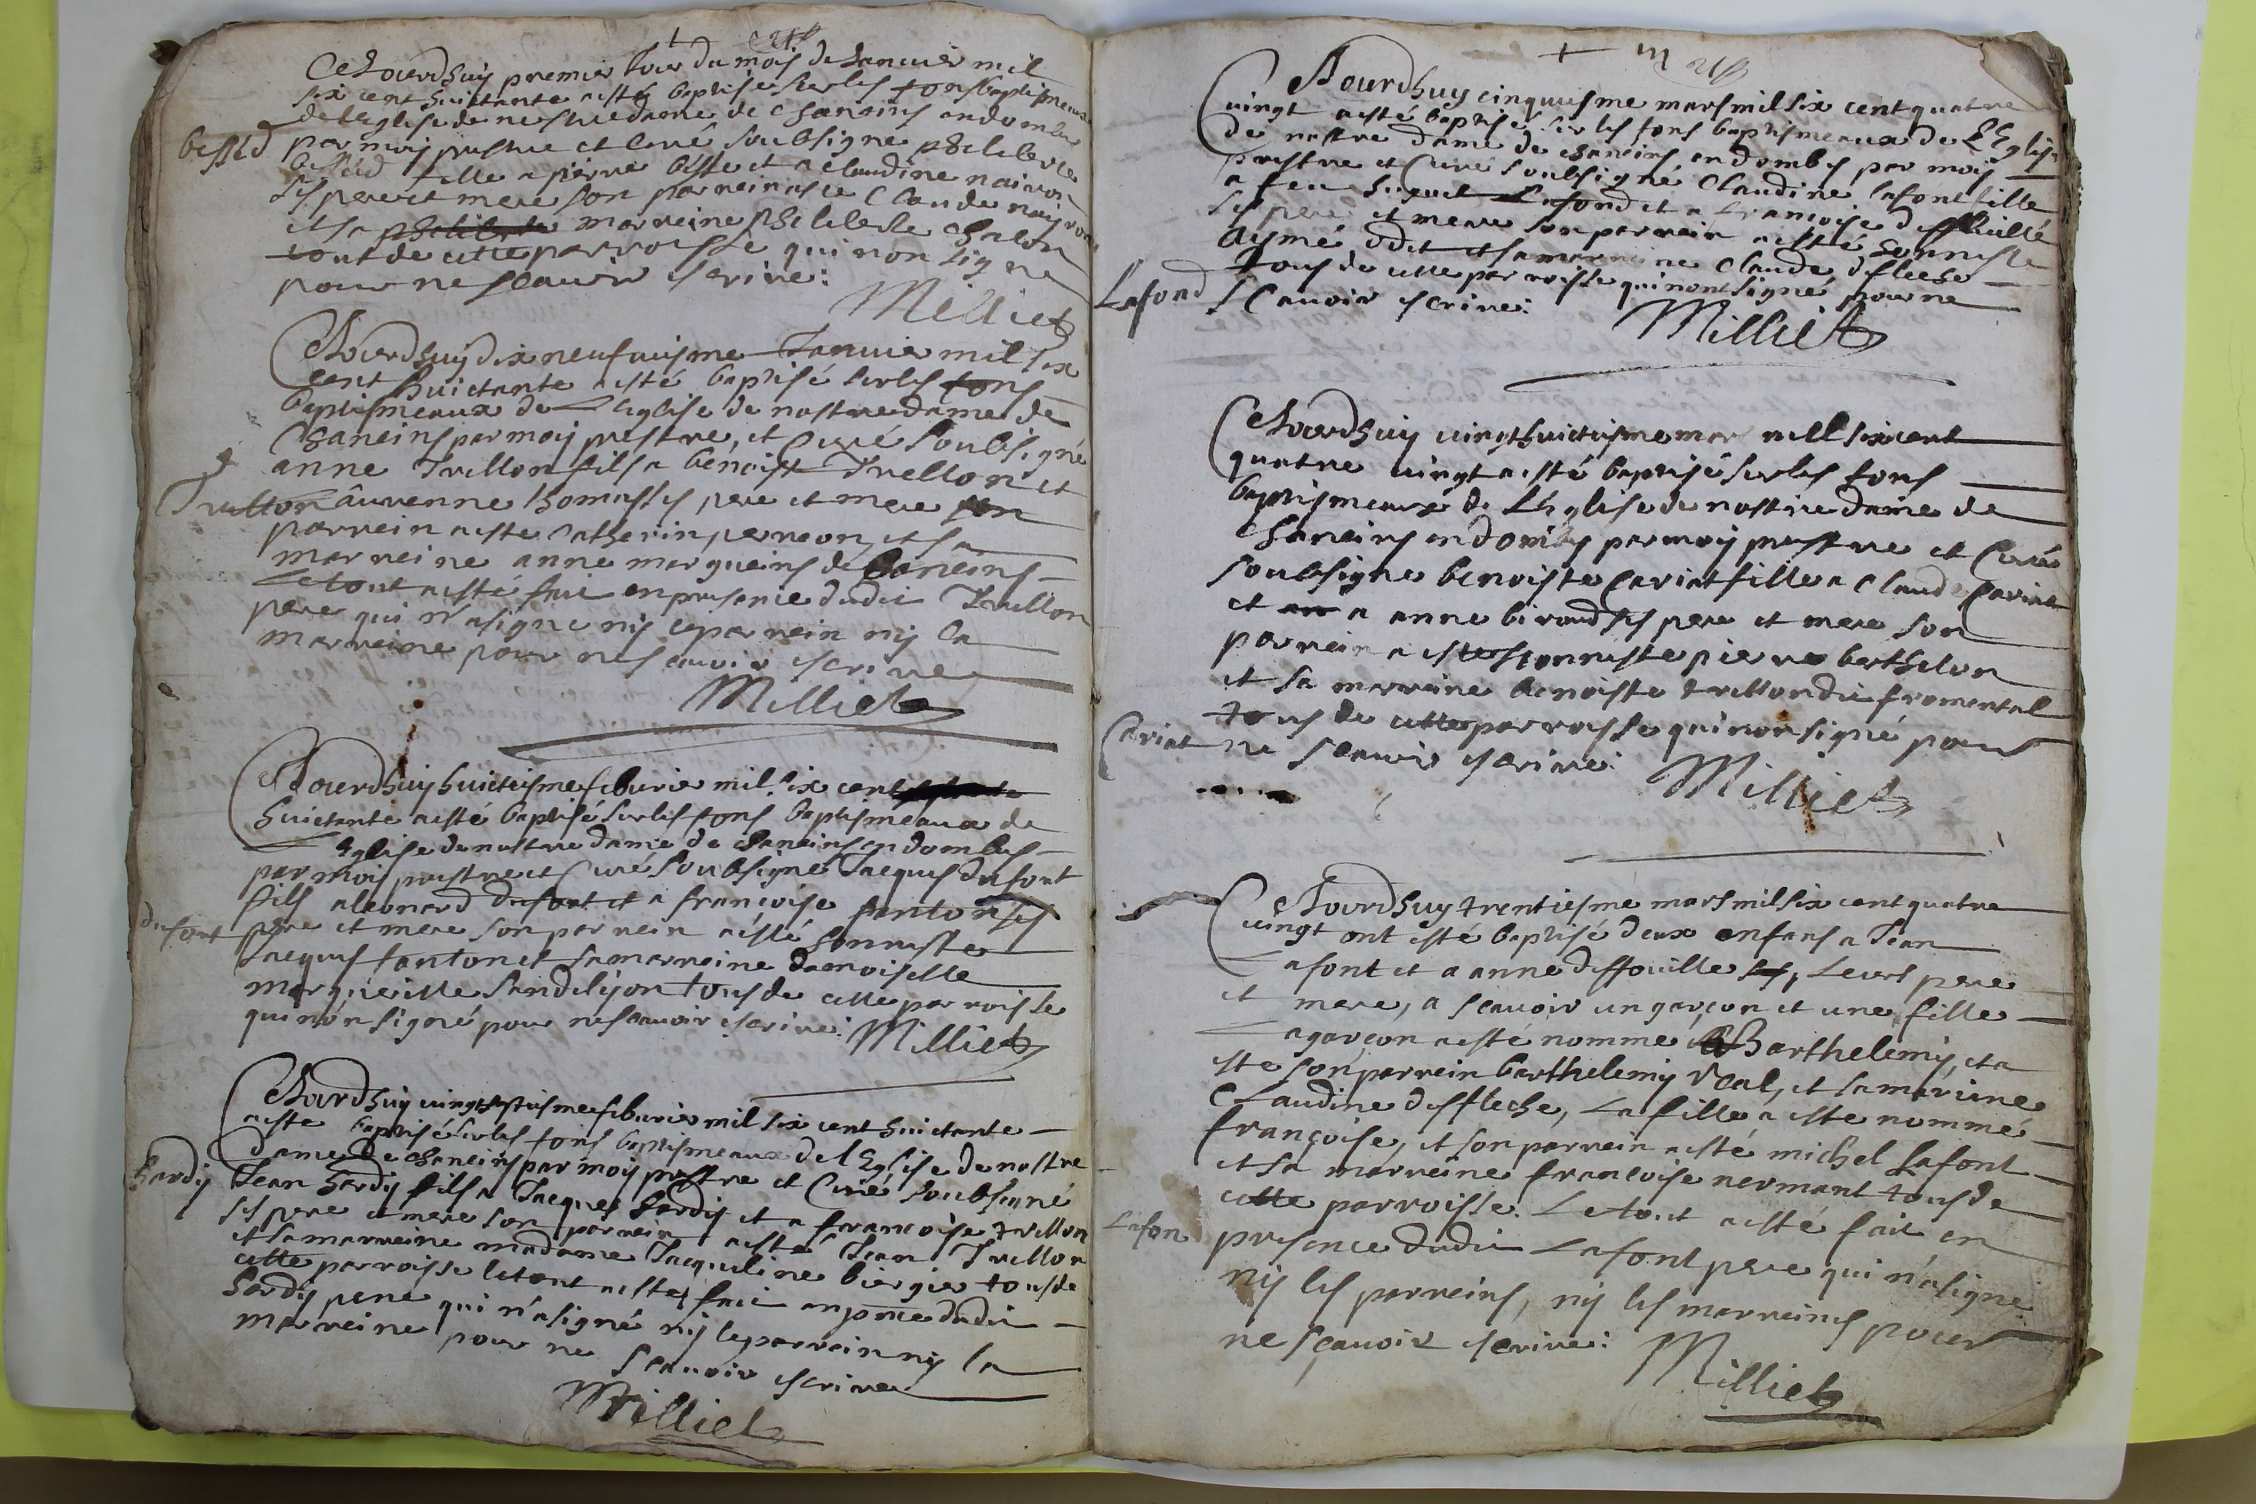 Ce Jourdhuy premier Jour du mois de Januier mil
six cent huictante a esté baptisé sur les fons baptismeaux
de l'Eglise de nostre dame de Chaneins en dombes
bessed par moy prestre et Curé soubsigné philiberte
bessed fille a pierre besse et a Claudine nairon
ses pere et mere son parrein a esté Claude nayron
et sa marreine philiberte Chalon
tout de cette parroisse qui non signe
pour ne scauoir escrire:
Milliet
Ce Jourdhuy dix neufuiesme Januier mil six
cent huictante a esté baptisé sur les fons
baptismeaux de L'Eglise de nostre dame de
Chaneins par moy prestre, et Curé soubsigné
anne Trellon fils a bénoist Trellon et
Trellon auvenne thomas ses pere et mere son
parrein a esté Catherin perneon, et sa
marreine anne marqueins de Chaneins
Le tout a esté fait en presence dudit Trellon
pere qui n'a signe ny le parrein ny la
marreine pour ne scauoir escrire
Milliet
Ce Jourdhuy huictiesme feburier mil six cent
huictante a esté baptisé sur les fons baptismeaux de
L'Eglise de nostre dame de Chaneins en dombes
par moy prestre et Curé soubsigné Jacques dufont
fils a leonard dufont et a francoise fanton ses
dufont pere et mere son parrein a esté honneste
Jacques fanton et sa marreine damoiselle
margueritte Sandelyon tous de cette parroisse
qui non signé pour ne scauoir escrire: Milliet
Ce Jourdhuy uingt septiesme feburier mil six cent huictante
a esté baptisé sur les fons baptismeaux de l'Eglise de nostre
dame de Chaneins par moy prestre et Curé soubsigné
hardy Jean hardy fils a Jacques hardy et a francoise trellon
ses pere et mere son parrein a esté Jean Trellon
et sa marreine madame Jacqueline biergier tous de
cette parroisse le tout a esté fait en pnce dudit
hardy pere qui n'a signé ny le parrein ny la
marreine pour ne scauoir escrire
Milliet
Ce Jourdhuy cinquiesme mars mil six cent quatre
uingt a esté baptisé sur les fons baptismeaux de L'Eglise
de nostre dame de Chaneins en dombes par moy
prestre et Curé soubsigné Claudine lafont fille
a feu Lafond et a francoise deffouille
ses pere et mere son parrein a esté honneste
Aymé odet et sa marreine Claude defleche
Lafond tous de cette parroisse qui nont signé pour ne
scauoir escrire:
Milliet
Ce Jourdhuy uingt huictiesme mars mill six cent
quatre uingt a esté baptisé sur les fons
baptismeaux de L'Eglise de nostre dame de
Chaneins en dombes par moy prestre et Curé
soubsigne benoiste Cariat fille a Claude Cariat
et a anne biroud ses pere et mere son
parrein a esté honneste pierre berthelon
et sa marreine benoiste trellon dit fromental
tous de cette parroisse qui non signé pour
Cariat ne scauoir escrire:
Milliet
Ce Jourdhuy trentiesme mars mil six cent quatre
uingt ont esté baptisé deux enfans a Jean
Lafont et a anne deffouille, Leurs pere
et mere, a scauoir un garçon et une fille
Le garçon a esté nommé Barthelemy, et a
esté son parrein barthelemy Veal, et sa mareine
Claudine deffleche, La fille a este nommé
françoise, et son parrein a esté michel Lafont
et sa marreine francoise nermant tous de
cette parroisse. Le tout a esté fait en
Lafon presence dudit Lafont pere qui n'a signe
ny les parreins, ny les marreines pour
ne sçauoir escrire:
Milliet